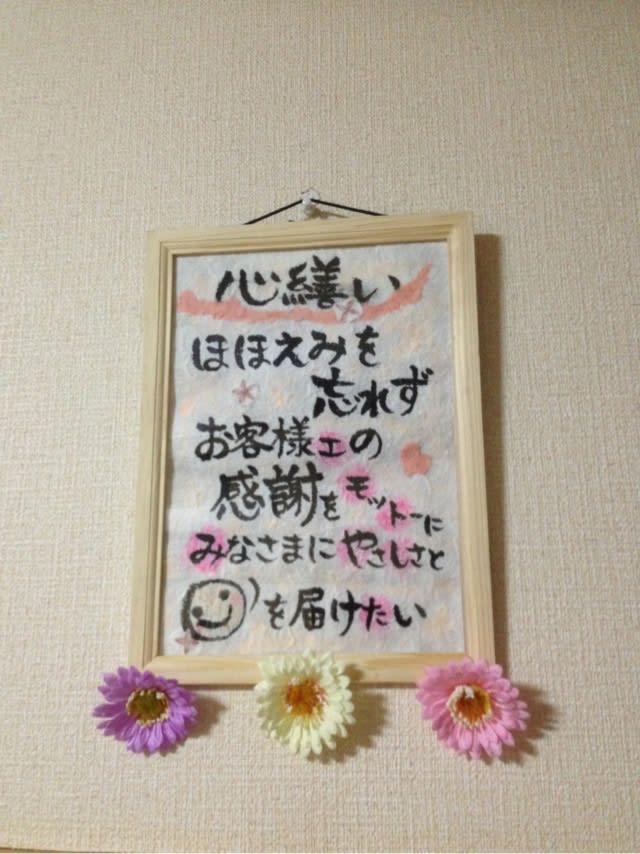 心繕い
ほほえみを
忘れず
お客様エの
感謝をモットーに
みなさまにやさしさと
を届けたい